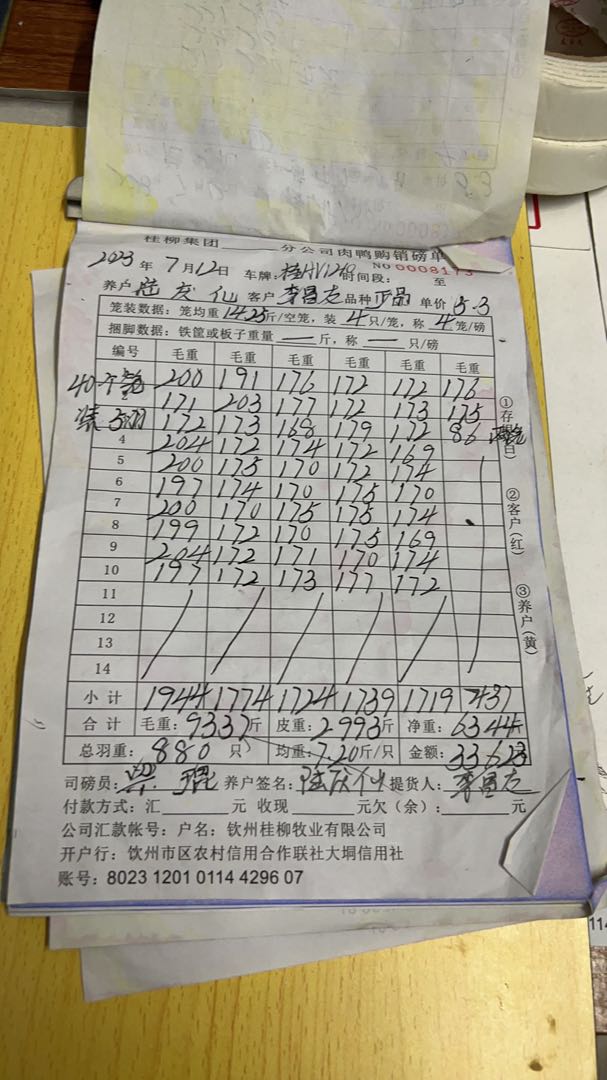 桂柳集团 分公司肉鸭购销磅单
2023年7月12日 车牌:桂 时间段: 至
No 0008173
养户 陆庆仙 客户 李昌志 品种 正品 单价 5.3
笼装数据:笼均重14.25斤/空笼,装4只/笼,称4笼/磅
捆脚数据:铁筐或板子重量 斤,称 只/磅
编号 毛重 毛重 毛重 毛重 毛重 毛重
200 191 176 172 172 176
171 203 177 172 173 175
172 173 168 179 172 86
4 204 172 174 172 169
5 200 175 170 172 174
6 197 174 170 175 170
7 200 170 175 175 174
8 199 172 170 175 169
9 204 172 171 170 174
10 197 172 173 177 172
11
12
13
14
小计 1944 1774 1724 1739 1719 437
合计 毛重:9337斤 皮重:2993斤 净重:6344斤
总羽重:880只 均重:7.20斤/只 金额:33623
司磅员: 养户签名:陆庆仙 提货人:李昌志
付款方式:汇 元 收现 元欠(余): 元
公司汇款帐号:户名:钦州桂柳牧业有限公司
开户行:钦州市区农村信用合作联社大垌信用社
账号:8023 1201 0114 4296 07
②客户(红)
③养户(黄)